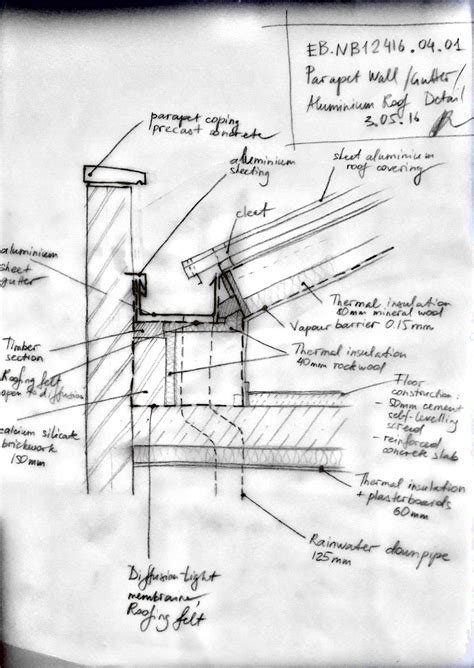 EB.NB12416.04.01
Parapet Wall/Gutter/
Aluminium Roof Detail
3.05.16
parapet coping
precast concrete
aluminium
sheeting
sheet aluminium
roof covering
cleet
aluminium
sheet
gutter
Thermal insulation
80mm mineral wool
Vapour barrier 0.15mm
Timber
section
Thermal insulation
40mm rockwool
Roofing felt
open to diffusion
Floor
construction:
- 50mm cement
self-levelling
screed
- reinforced
concrete slab
calcium silicate
brickwork
150mm
Thermal insulation
+ plasterboards
60mm
Rainwater downpipe
125mm
Diffusion tight
membranne/
Roofing felt